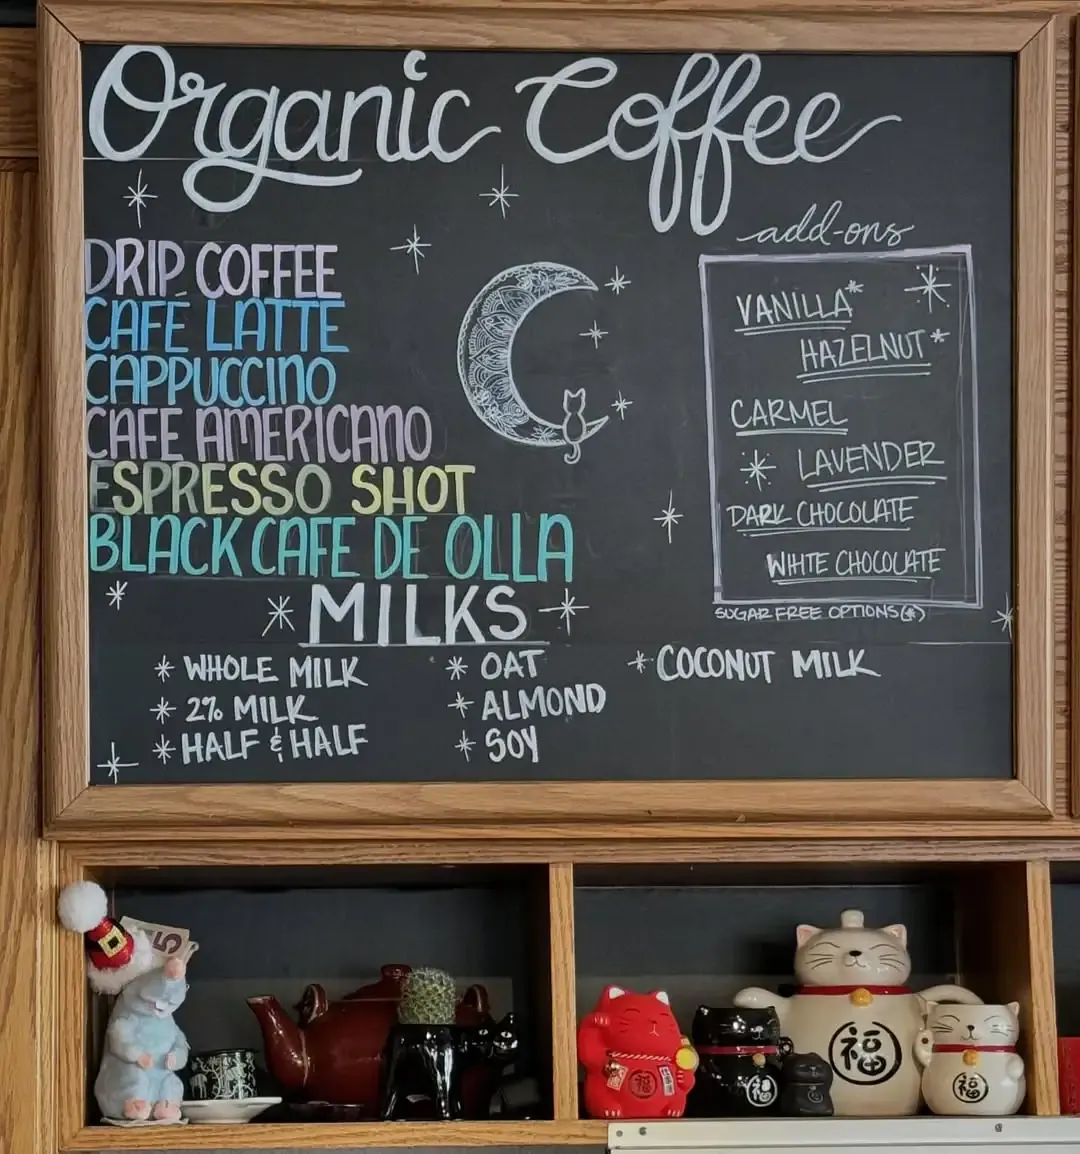 Organic Coffee
DRIP COFFEE
CAFÉ LATTE
CAPPUCCINO
CAFE AMERICANO
ESPRESSO SHOT
BLACK CAFE DE OLLA
add-ons
VANILLA*
HAZELNUT*
CARMEL
LAVENDER
DARK CHOCOLATE
WHITE CHOCOLATE
SUGAR FREE OPTIONS(*)
MILKS
* WHOLE MILK
* 2% MILK
* HALF & HALF
* OAT
* ALMOND
* SOY
* COCONUT MILK
5
福
福
福
福